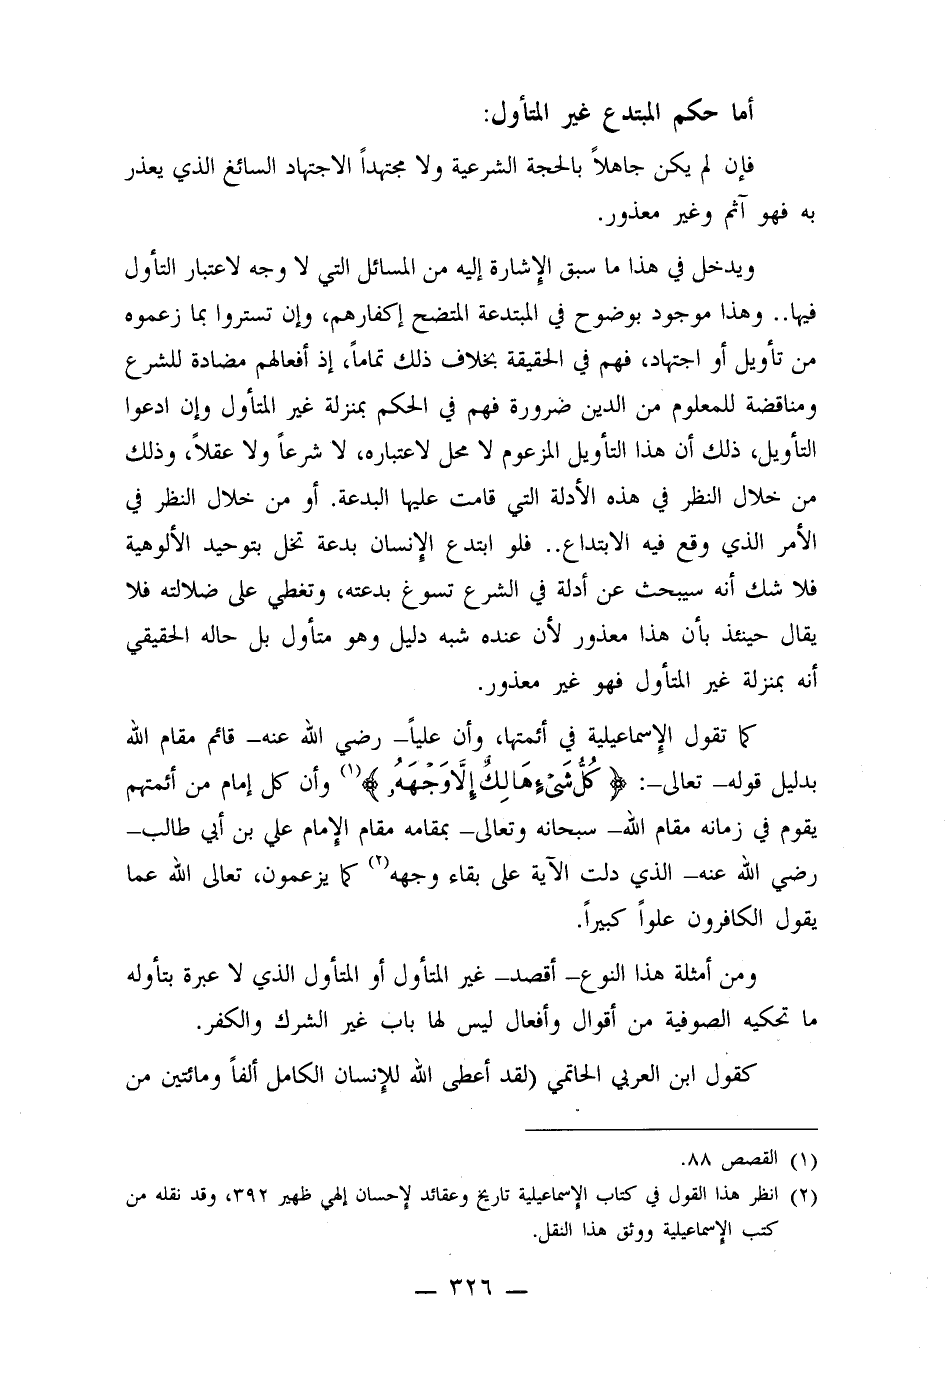 أما حكم المبتدع غير المتأول:
فإن لم يكن جاهلاً بالحجة الشرعية ولا مجتهداً الاجتهاد السائغ الذي يعذر
به فهو آثم وغير معذور.
ويدخل في هذا ما سبق الإشارة إليه من المسائل التي لا وجه لاعتبار التأول
فيها.. وهذا موجود بوضوح في المبتدعة المتضح إكفارهم، وإن تستروا بما زعموه
من تأويل أو اجتهاد، فهم في الحقيقة بخلاف ذلك تماماً، إذ أفعالهم مضادة للشرع
ومناقضة للمعلوم من الدين ضرورة فهم في الحكم بمنزلة غير المتأول وإن ادعوا
التأويل، ذلك أن هذا التأويل المزعوم لا محل لاعتباره، لا شرعاً ولا عقلاً، وذلك
من خلال النظر في هذه الأدلة التي قامت عليها البدعة. أو من خلال النظر في
الأمر الذي وقع فيه الابتداع.. فلو ابتدع الإنسان بدعة تخل بتوحيد الألوهية
فلا شك أنه سيبحث عن أدلة في الشرع تسوغ بدعته، وتغطي على ضلالته فلا
يقال حينئذ بأن هذا معذور لأن عنده شبه دليل وهو متأول بل حاله الحقيقي
أنه بمنزلة غير المتأول فهو غير معذور.
كما تقول الإسماعيلية في أئمتها، وأن علياً– رضي الله عنه– قائم مقام الله
بدليل قوله– تعالى–: ﴿ كُلُّ شَىْءٍ هَالِكٌ إِلَّا وَجْهَهُۥ ﴾(١) وأن كل إمام من أئمتهم
يقوم في زمانه مقام الله– سبحانه وتعالى– بمقامه مقام الإمام علي بن أبي طالب–
رضي الله عنه– الذي دلت الآية على بقاء وجهه(٢) كما يزعمون، تعالى الله عما
يقول الكافرون علواً كبيراً.
ومن أمثلة هذا النوع– أقصد– غير المتأول أو المتأول الذي لا عبرة بتأوله
ما تحكيه الصوفية من أقوال وأفعال ليس لها باب غير الشرك والكفر.
كقول ابن العربي الحاتمي (لقد أعطى الله للإنسان الكامل ألفاً ومائتين من
(١) القصص ٨٨.
(٢) انظر هذا القول في كتاب الإسماعيلية تاريخ وعقائد لإحسان إلهي ظهير ٣٩٢، وقد نقله من
كتب الإسماعيلية ووثق هذا النقل.
— ٣٢٦ —